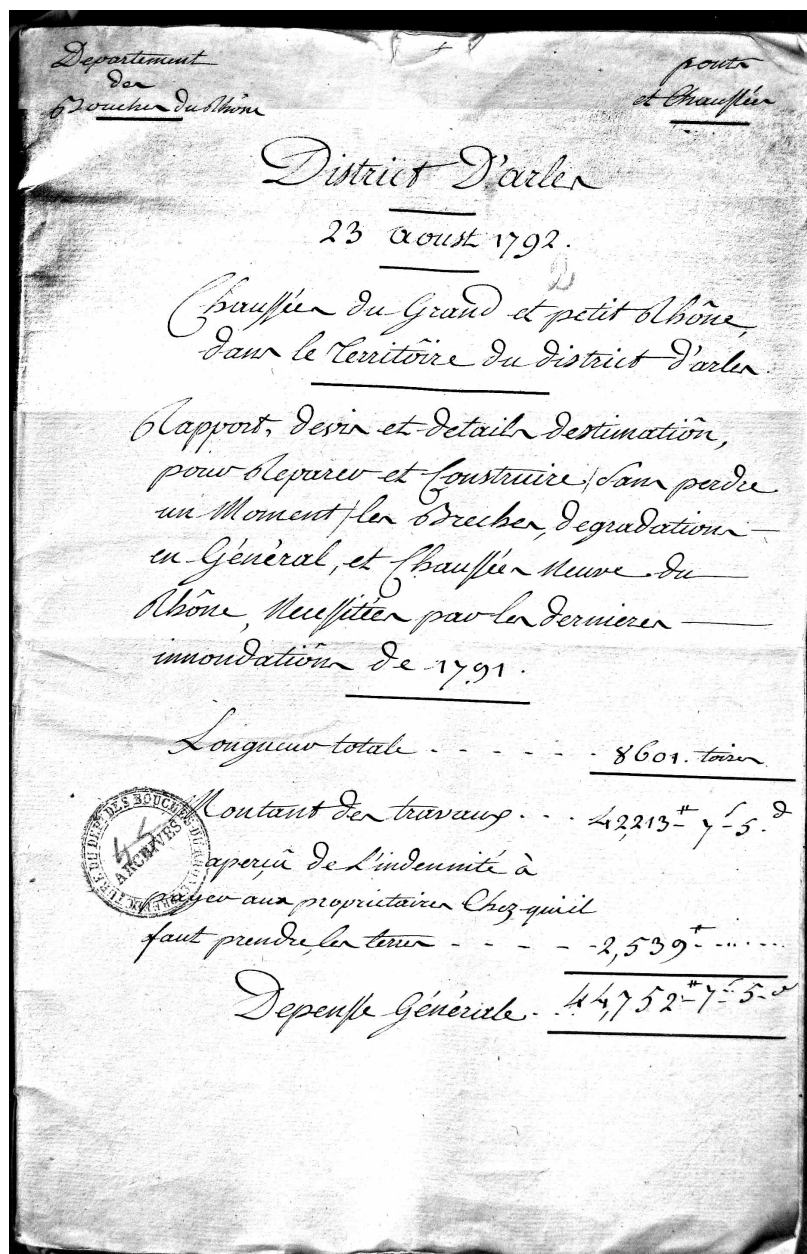 Departement
des
Bouches du Rhône
ponts
et Chaussées
District D'arles
23 aoust 1792.
2
Chaussées du Grand et petit Rhône,
dans le Territôire du district d'arles.
Rapport, devis et details destimatiôn,
pour Reparer et Construire / sans perdre
un Moment / les Breches, degradations
en Général, et Chaussées Neuve du
Rhône, Necessitées par les dernieres
innondatiôns de 1791.
Longueur totale - - - - - - 8601. toises
Montant des travaux - - - 42,213# 7s 5.d
aperçû de L'indemnité à
payer aux proprietaires Chez qui il
faut prendre, les terres - - - - - 2,539# - ... ...
Depensse Générale - 44,752# 7s 5 d
PREFECTURE DU DEPT DES BOUCHES-DU-RHONE
ARCHIVES